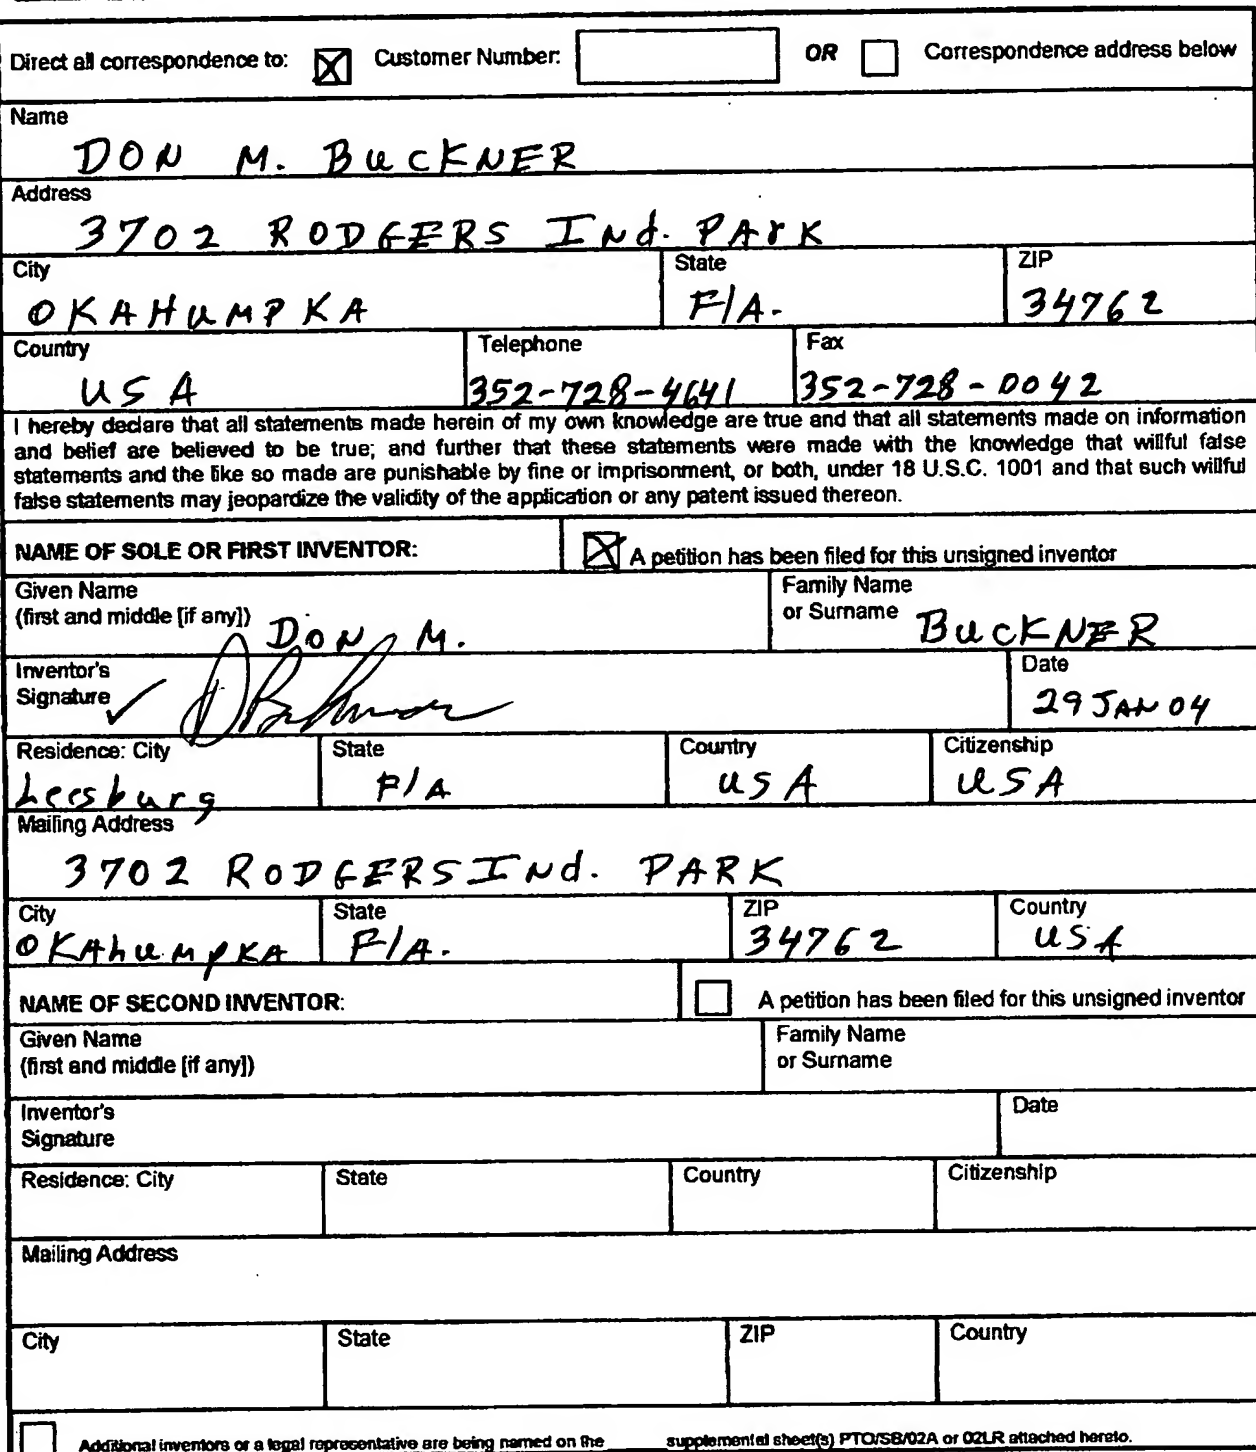 Direct all correspondence to: ☒ Customer Number: OR ☐ Correspondence address below
Name
DON M. BUCKNER
Address
3702 RODGERS INd. PArK
City State ZIP
OKAHUMPKA FlA. 34762
Country Telephone Fax
USA 352-728-4641 352-728-0042
I hereby declare that all statements made herein of my own knowledge are true and that all statements made on information
and belief are believed to be true; and further that these statements were made with the knowledge that willful false
statements and the like so made are punishable by fine or imprisonment, or both, under 18 U.S.C. 1001 and that such willful
false statements may jeopardize the validity of the application or any patent issued thereon.
NAME OF SOLE OR FIRST INVENTOR: ☒ A petition has been filed for this unsigned inventor
Given Name Family Name
(first and middle [if any]) DoN M. or Surname BUCKNER
Inventor's Date
Signature ✓ 29 JAN 04
Residence: City State Country Citizenship
Leesburg FlA USA USA
Mailing Address
3702 RODGERS INd. PARK
City State ZIP Country
OKAhuMpKA FlA. 34762 USA
NAME OF SECOND INVENTOR: ☐ A petition has been filed for this unsigned inventor
Given Name Family Name
(first and middle [if any]) or Surname
Inventor's Date
Signature
Residence: City State Country Citizenship
Mailing Address
City State ZIP Country
☐ Additional inventors or a legal representative are being named on the ____ supplemental sheet(s) PTO/SB/02A or 02LR attached hereto.